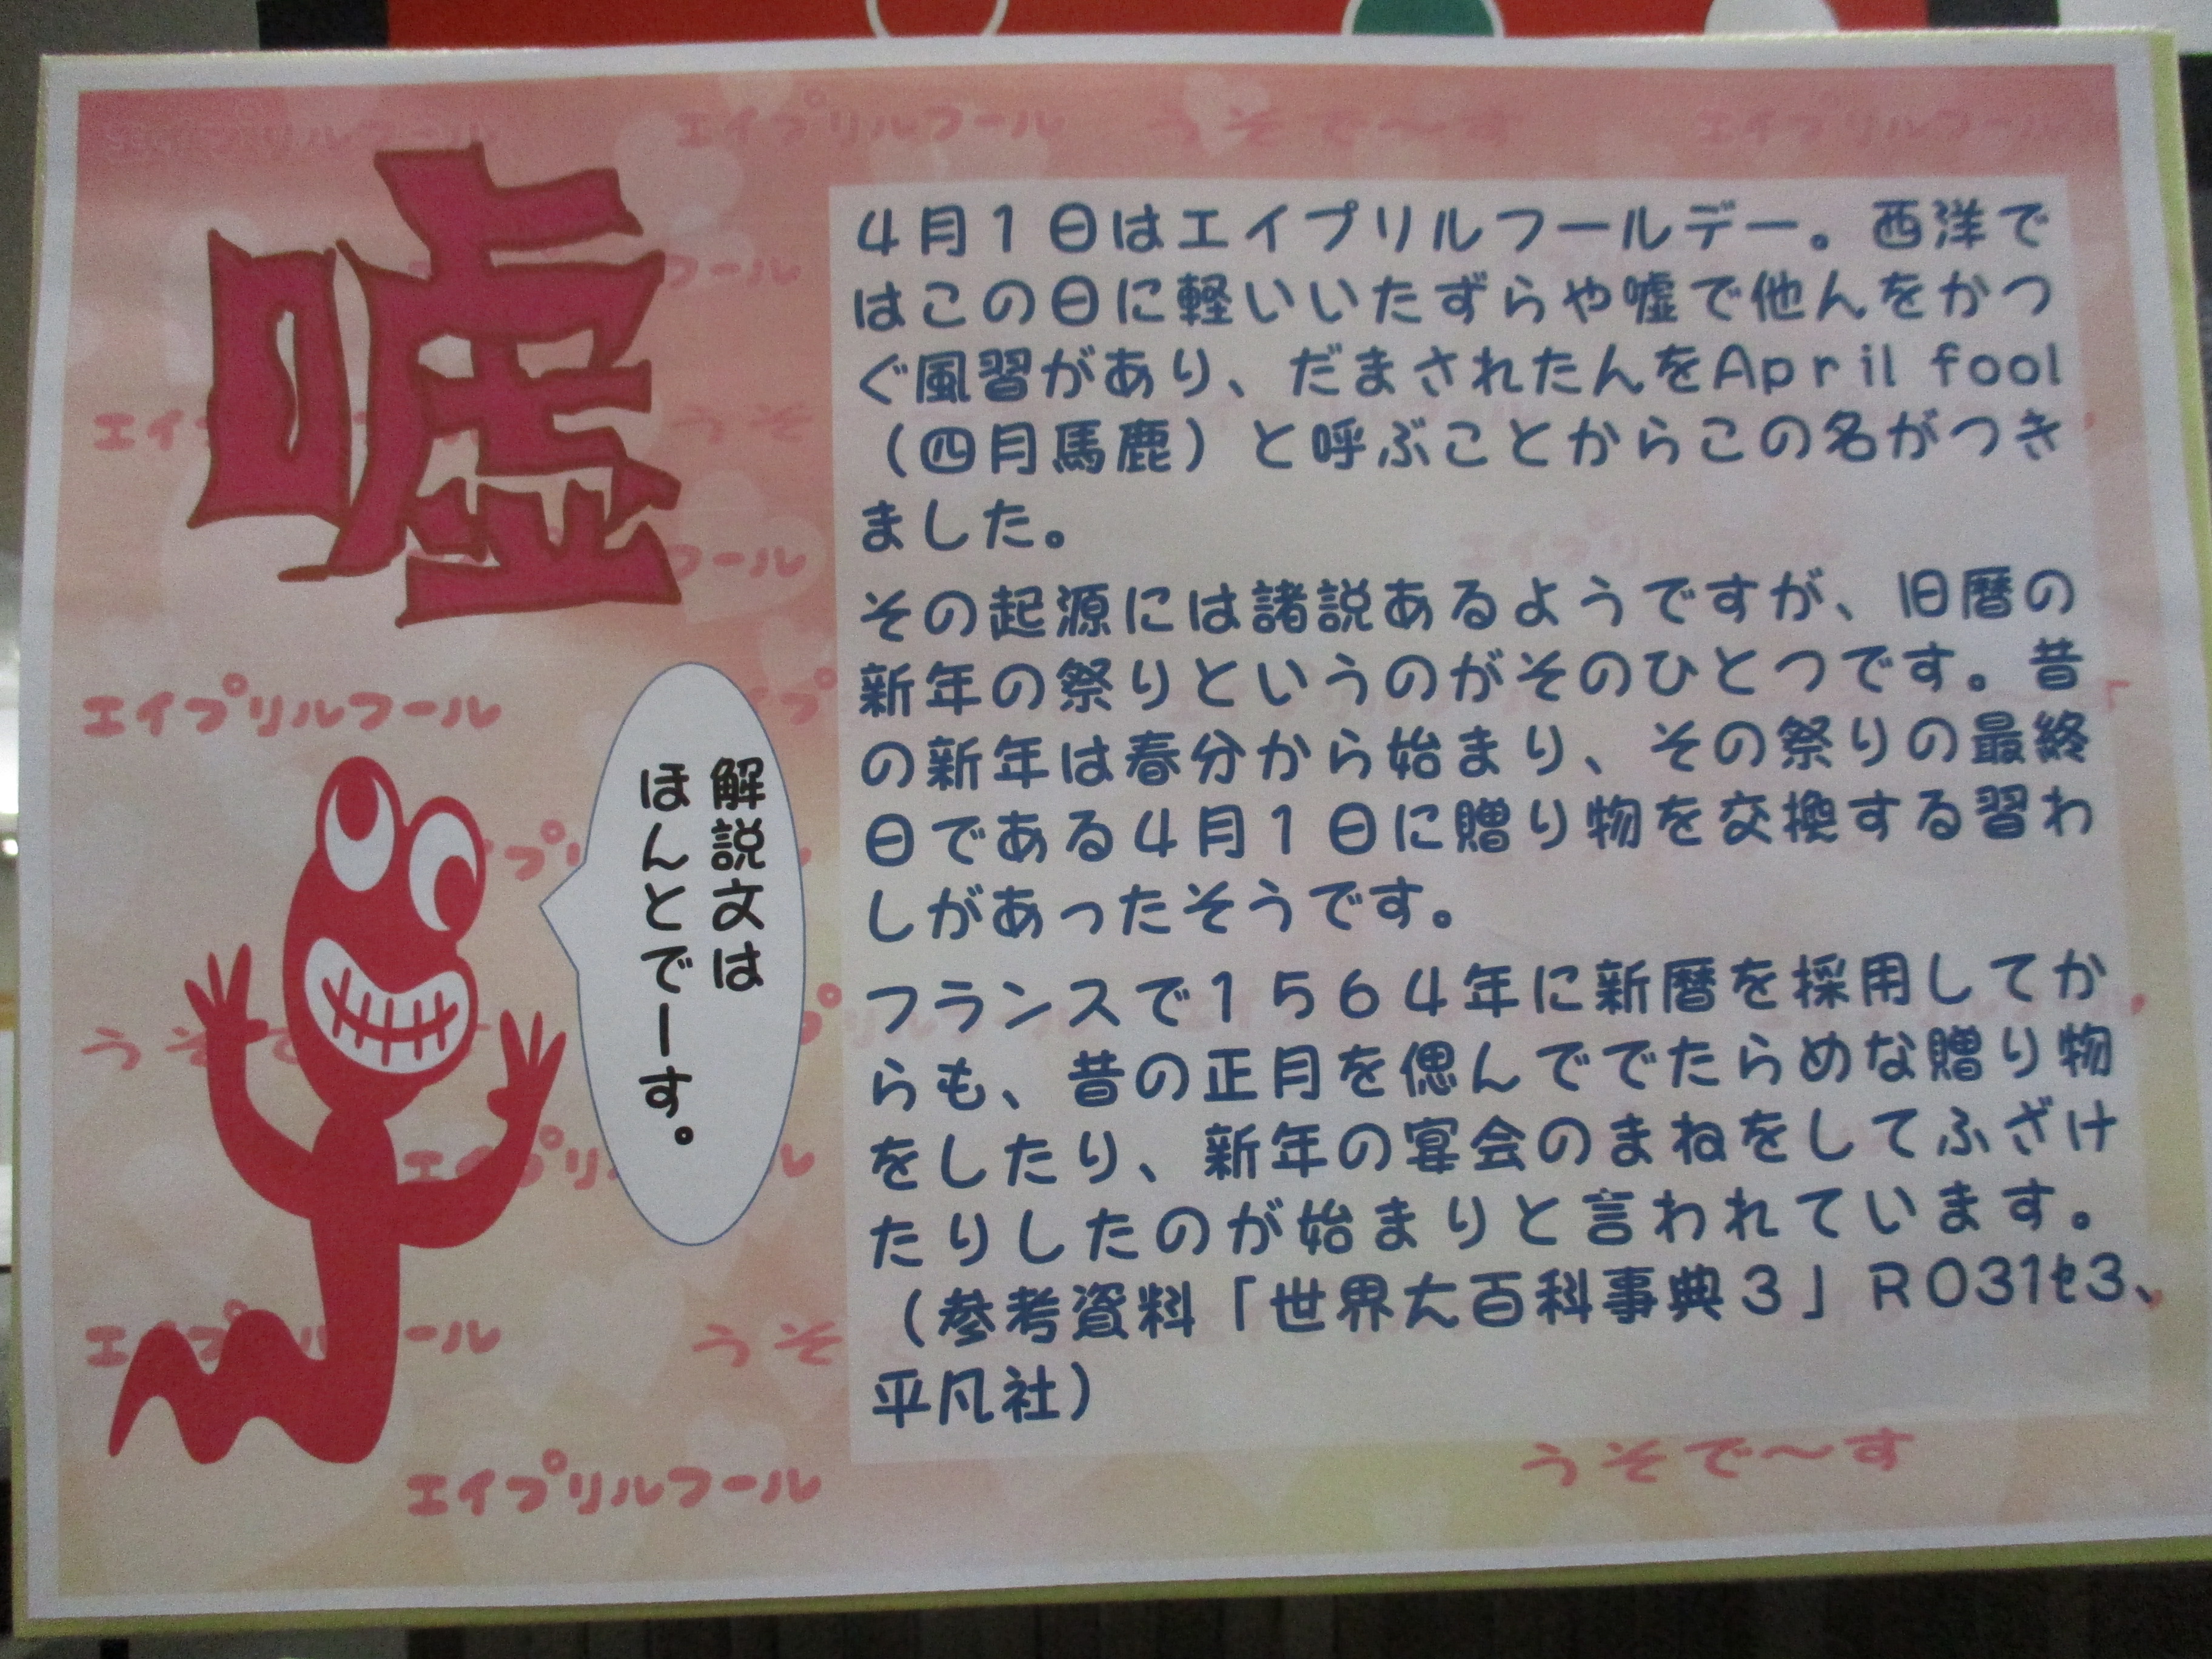 嘘
4月1日はエイプリルフールデー。西洋で
はこの日に軽いいたずらや嘘で他んをかつ
ぐ風習があり、だまされたんをApril fool
（四月馬鹿）と呼ぶことからこの名がつき
ました。
その起源には諸説あるようですが、旧暦の
新年の祭りというのがそのひとつです。昔
の新年は春分から始まり、その祭りの最終
日である4月1日に贈り物を交換する習わ
しがあったそうです。
フランスで1564年に新暦を採用してか
らも、昔の正月を偲んででたらめな贈り物
をしたり、新年の宴会のまねをしてふざけ
たりしたのが始まりと言われています。
（参考資料「世界大百科事典3」R031ｾ3、
平凡社）
解説文は
ほんとでーす。
エイプリルフール
エイプリルフール
うそで〜す
エイプリルフール
エイプリルフール
エイプリルフール
うそで〜す